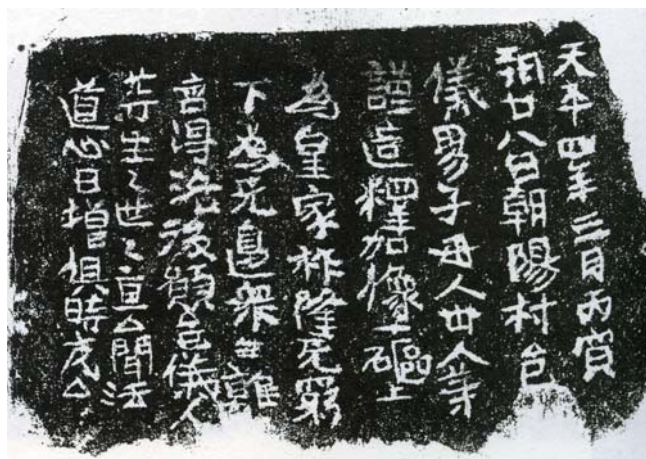 天平四年三月丙寅
朔廿八日朝陽村邑
儀男子母人卅人等
謹造釋加像一軀上
為皇家祚隆无窮
下為无邊衆生離
苦得洛後願邑儀人
等生〻世〻直厶聞法
道心日增俱時成厶